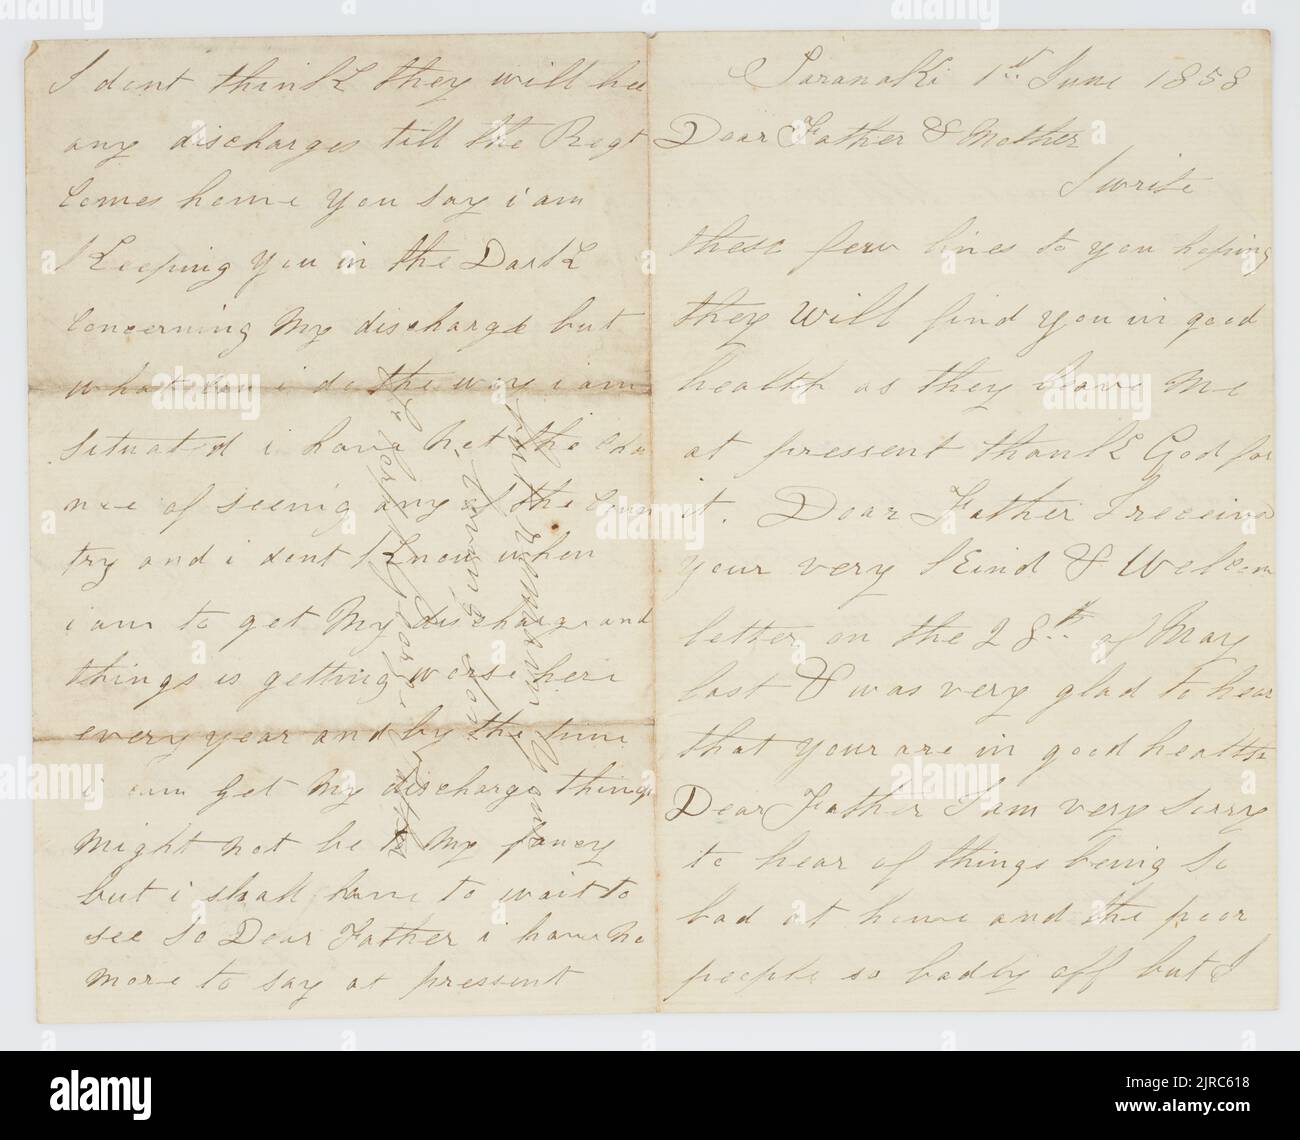 Taranaki 1st June 1858
Dear Father & Mother
I write
these few lines to you hoping
they will find you in good
health as they leave me
at pressent thank God for
it. Dear Father I receive
your very kind & Welcom
letter on the 28th of May
last & was very glad to hear
that your are in good health
Dear Father I am very sorry
to hear of things being so
bad at home and the poor
people so badly off but I
I dont think they will hee
any discharges till the Regt
Comes home you say i am
Keeping you in the Dark
Concerning My discharge but
what can i do the way i am
situated i have not the cha
nce of seeing any of the Coun
try and i dont Know when
i am to get My discharge and
things is getting worse here
every year and by the time
i am get My discharge things
Might not be to My fancy
but i shall have to wait to
see So Dear Father i have no
More to say at pressent
but remaining your
loving son
George
alamy
Image ID: 2JRC618
www.alamy.com